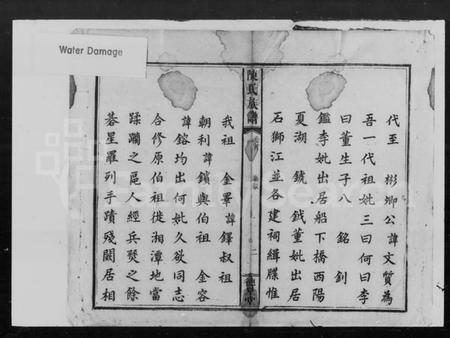 Water Damage
代至 彬卿公諱文質為
吾一代祖妣三曰何曰李
曰董生子八 銘 釗
鑑李妣出居船下橋西陽
夏湖 鋶 鉞董妣出居
石獅江並各建祠緝牒惟
陳氏族譜
二
我祖 金睪諱鐸叔祖
朝利諱鑌與伯祖 金容
諱鎔均出何妣久敘同志
合修原伯祖徙湘潭地當
蹂躪之區人經兵燹之餘
碁星羅列手蹟殘闕居相